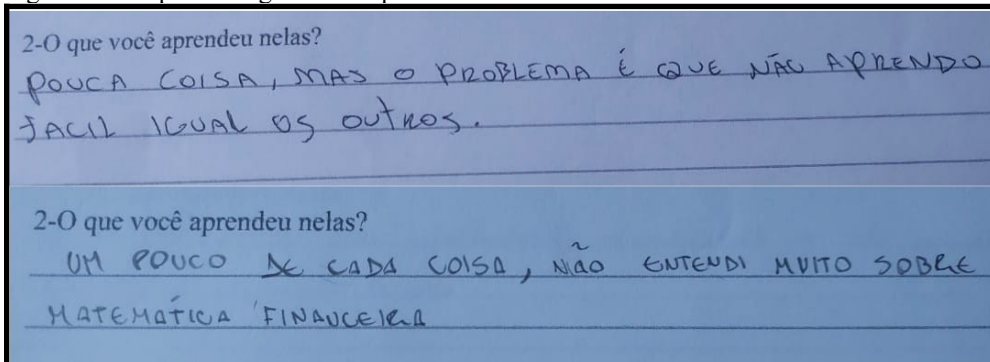 2-O que você aprendeu nelas?
POUCA COISA, MAS O PROBLEMA É QUE NÃO APRENDO
FACIL IGUAL OS OUTROS.
2-O que você aprendeu nelas?
UM POUCO DE CADA COISA, NÃO ENTENDI MUITO SOBRE
MATEMÁTICA FINANCEIRA